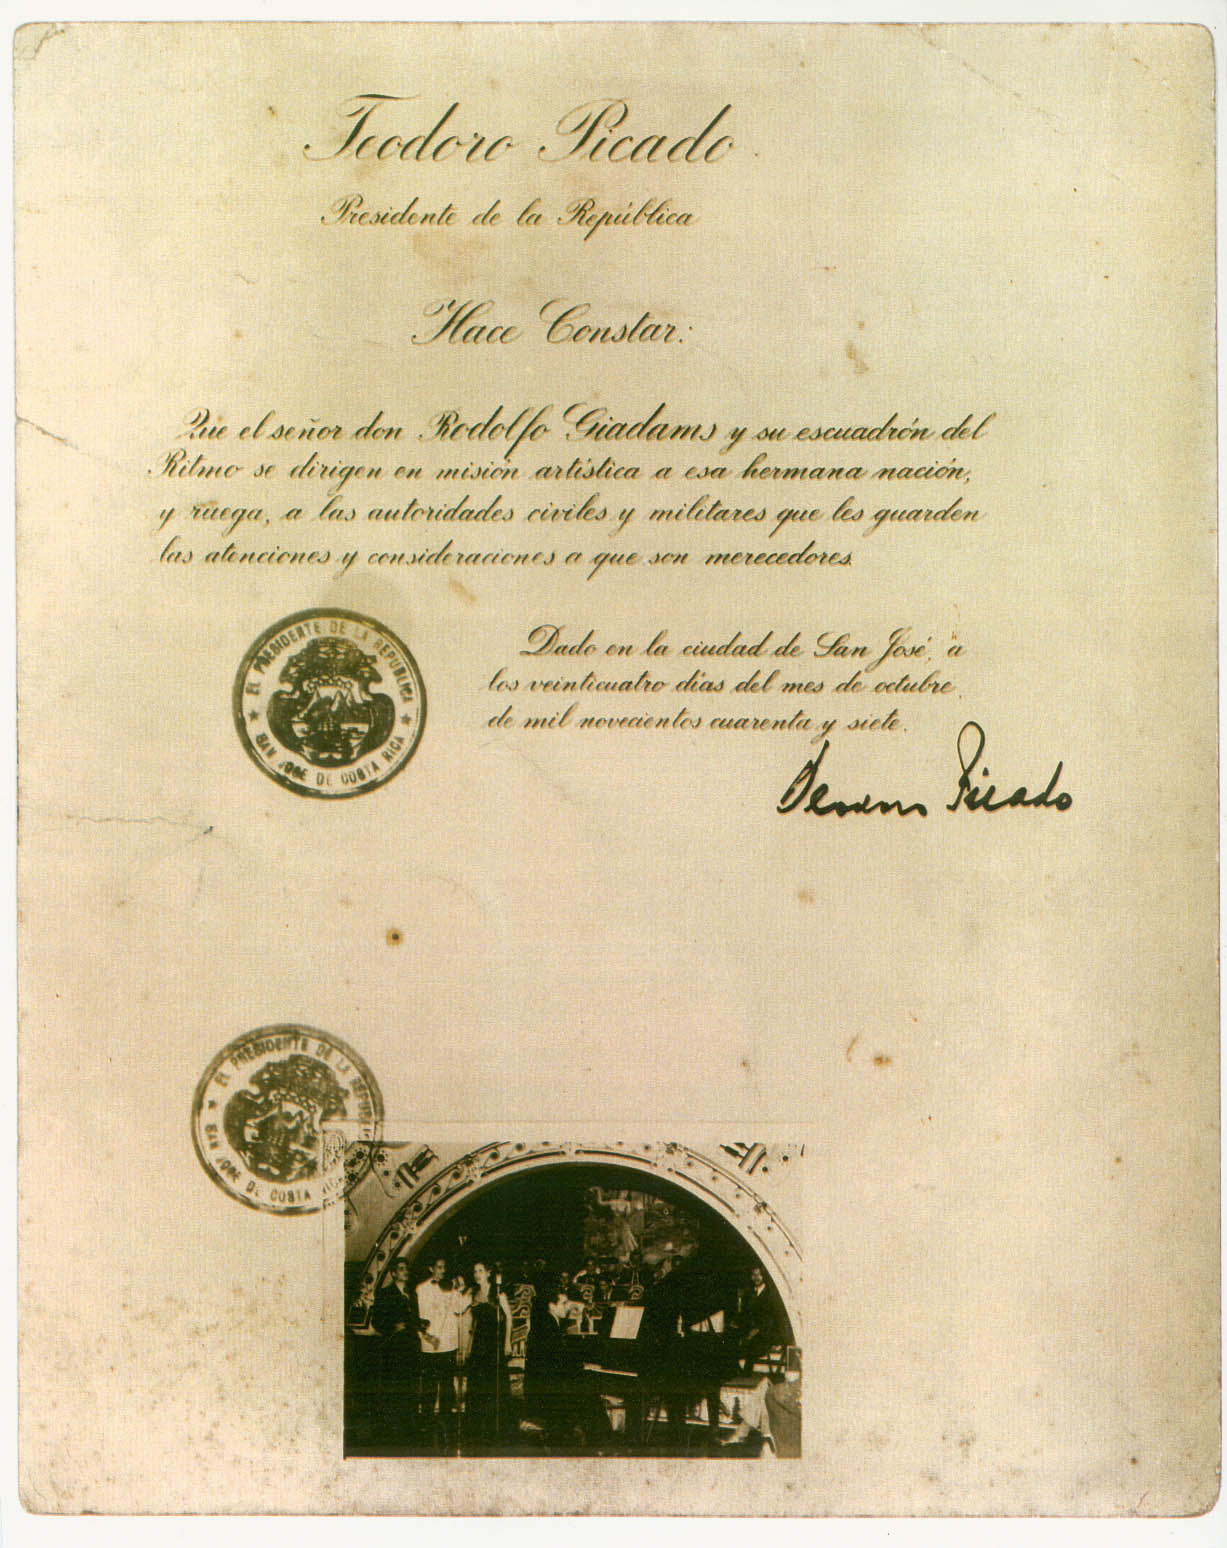 Teodoro Picado
Presidente de la República
Hace Constar:
Que el señor don Rodolfo Giadams y su escuadrón del
Ritmo se dirigen en misión artística a esa hermana nación,
y ruega, a las autoridades civiles y militares que les guarden
las atenciones y consideraciones a que son merecedores.
EL PRESIDENTE DE LA REPUBLICA
SAN JOSE DE COSTA RICA
Dado en la ciudad de San José, a
los veinticuatro días del mes de octubre
de mil novecientos cuarenta y siete.
Teodoro Picado
EL PRESIDENTE DE LA REPUBLI
SAN JOSE DE COSTA RI